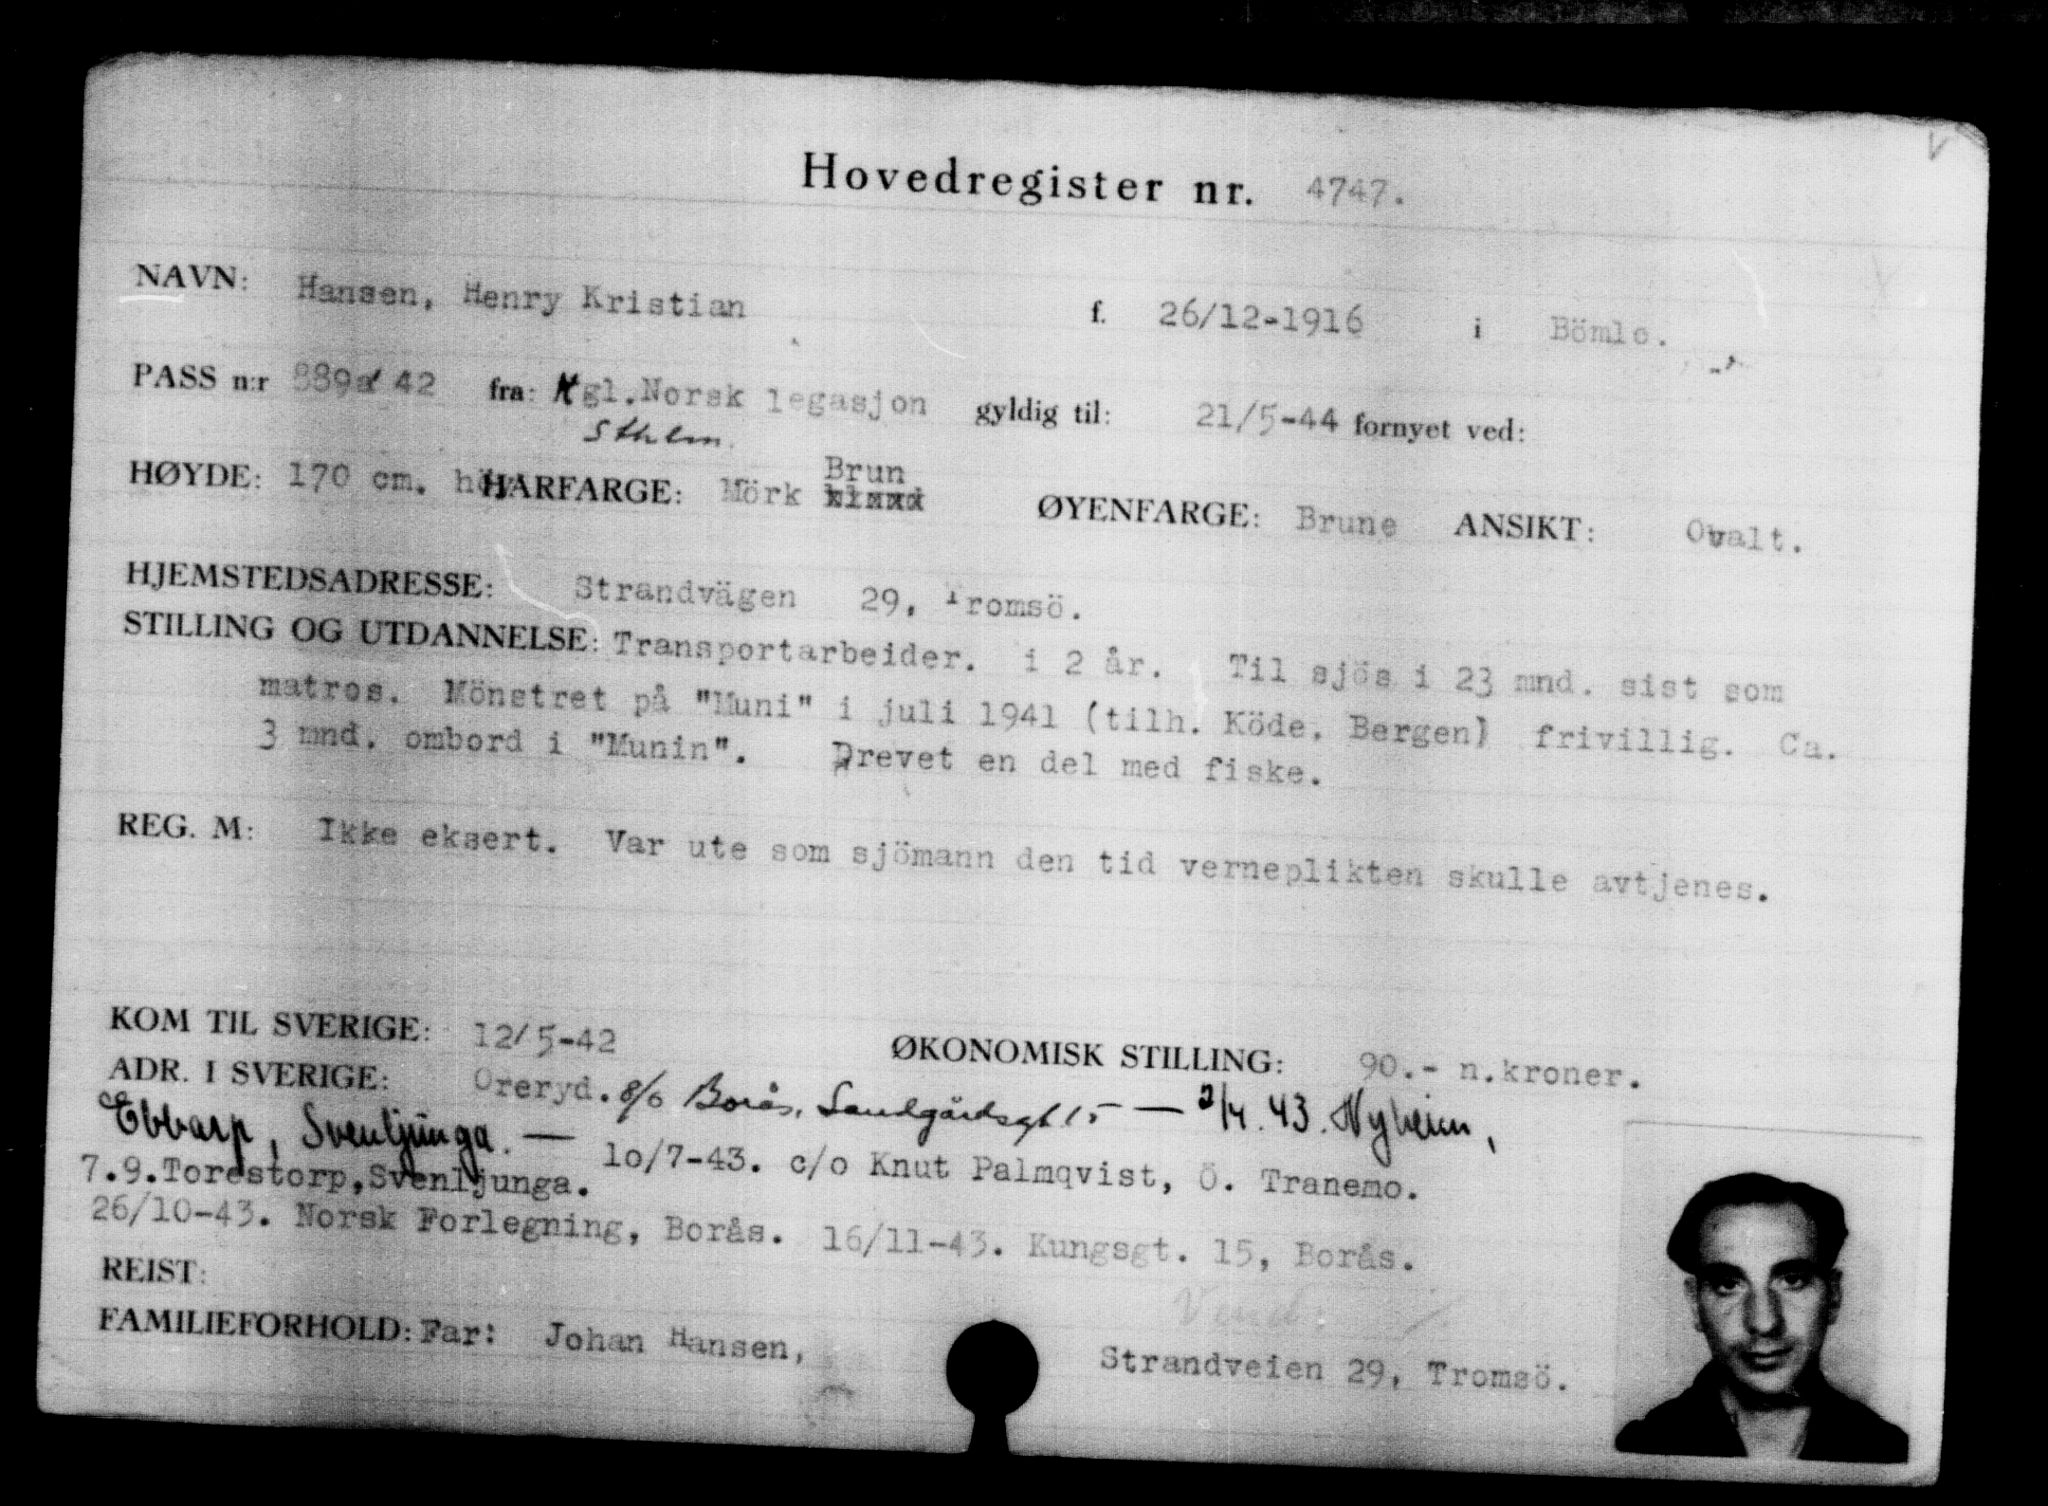 Hovedregister nr. 4747.
NAVN: Hansen, Henry Kristian f. 26/12-1916 i Bömlo.
PASS n:r 889a/42 fra: Kgl.Norsk legasjon gyldig til: 21/5-44 fornyet ved:
Sthlm.
Brun
HØYDE: 170 cm. höy HÅRFARGE: Mörk ØYENFARGE: Brune ANSIKT: Ovalt.
HJEMSTEDSADRESSE: Strandvägen 29, Tromsö.
STILLING OG UTDANNELSE: Transportarbeider. i 2 år. Til sjös i 23 mnd. sist som
matros. Mönstret på "Muni" i juli 1941 (tilh. Köde, Bergen) frivillig. Ca.
3 mnd. ombord i "Munin". Drevet en del med fiske.
REG. M: Ikke eksert. Var ute som sjömann den tid verneplikten skulle avtjenes.
KOM TIL SVERIGE: 12/5-42 ØKONOMISK STILLING: 90.- n.kroner.
ADR. I SVERIGE: Öreryd. 8/6 Borås, Landgårdsgt 15 — 2/4.43. Nyheim,
Ebbarp, Svenljunga. — 10/7-43. c/o Knut Palmqvist, Ö. Tranemo.
7.9.Torestorp,Svenljunga.
26/10-43. Norsk Forlegning, Borås. 16/11-43. Kungsgt. 15, Borås.
REIST:
Vend.
FAMILIEFORHOLD: Far: Johan Hansen, Strandveien 29, Tromsö.